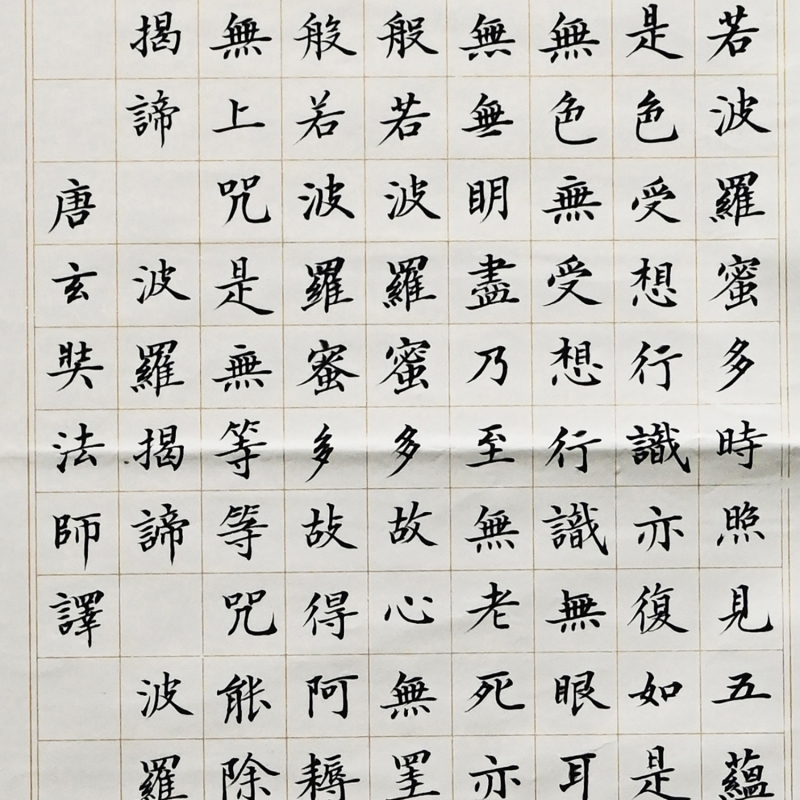 若波羅蜜多時照見五蘊
是色受想行識亦復如是
無色無受想行識無眼耳
無無明盡乃至無老死亦
般若波羅蜜多故心無罣
般若波羅蜜多故得阿耨
無上咒是無等等咒能除
揭諦 波羅揭諦 波羅
唐玄奘法師譯